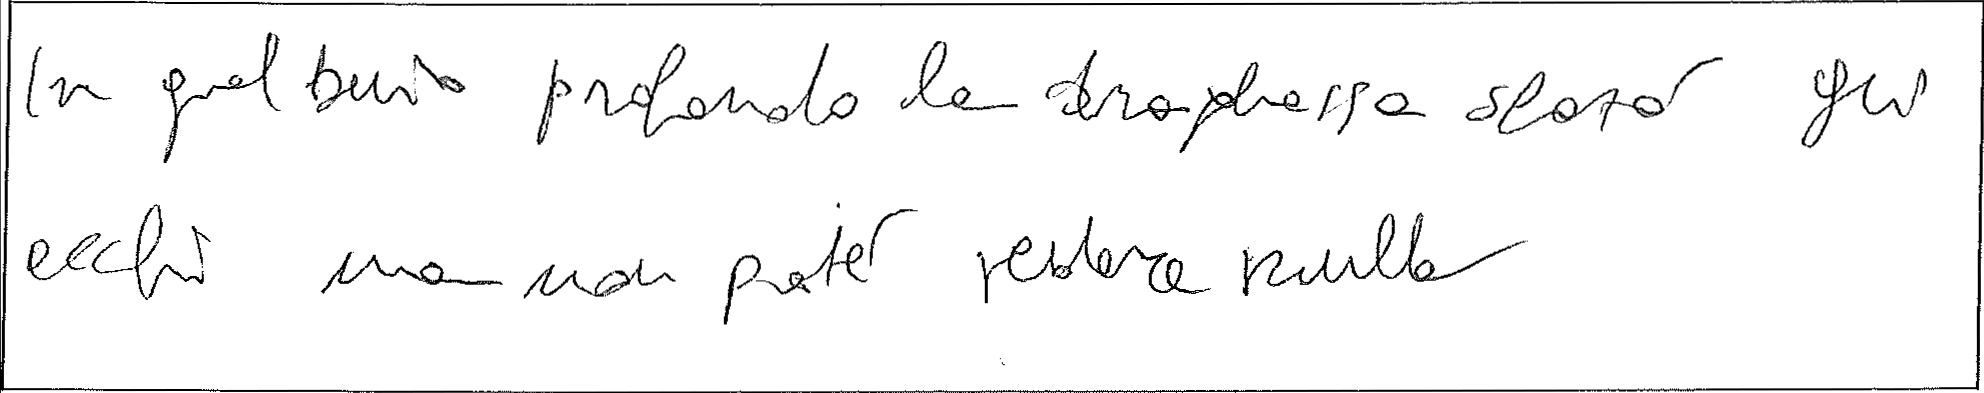 In quel buio profondo la draghessa sbarrò gli
occhi ma non poté vedere nulla